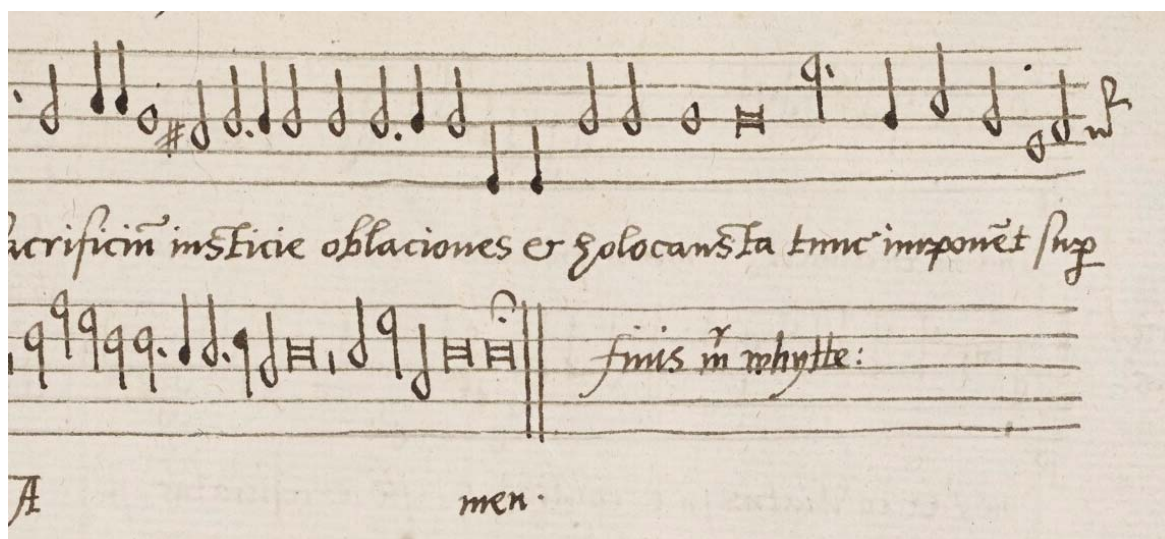 acrificiū iusticie oblaciones et holocausta tunc imponēt sup
finis mr whytte:
A men.